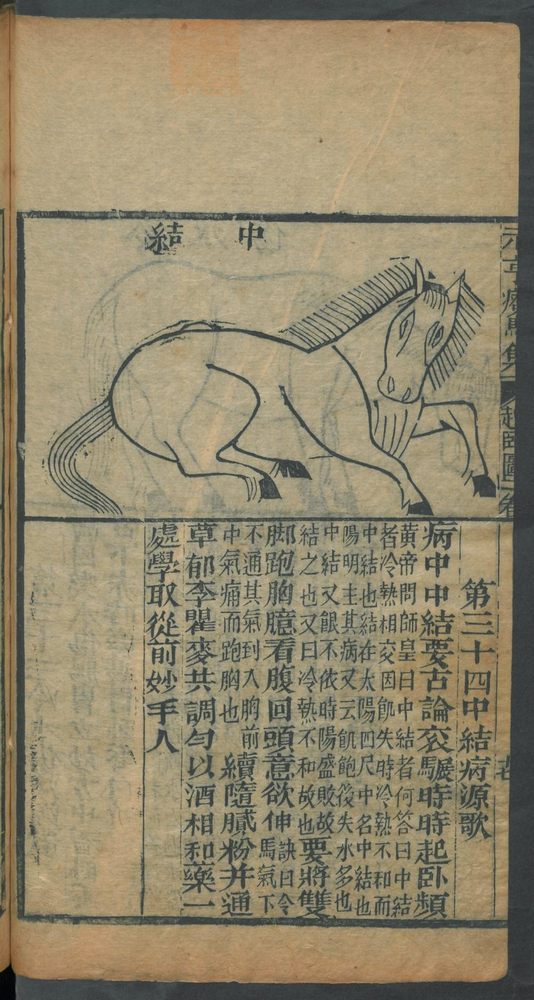 元亨療馬集
起臥圖
卷
中結
第三十四中結病源歌
病中中結要古論衮䮜時時起臥頻
黃帝問師皇曰中結者何答曰中結
者冷熱相交因飢失時冷熱不和而
中結也結在太陽四尺中名中結也
陽明主其病又云飢飽後失水多也
中結又餵不依時陽盛敗故
結之也又曰冷熱不和故也
要將雙
脚跑胸臆看腹回頭意欲伸
訣曰令
馬氣下
不通其氣到入胸前
中氣痛而跑胸也
續隨膩粉并通
草郁李瞿麥共調勻以酒相和藥一
處學取從前妙手人